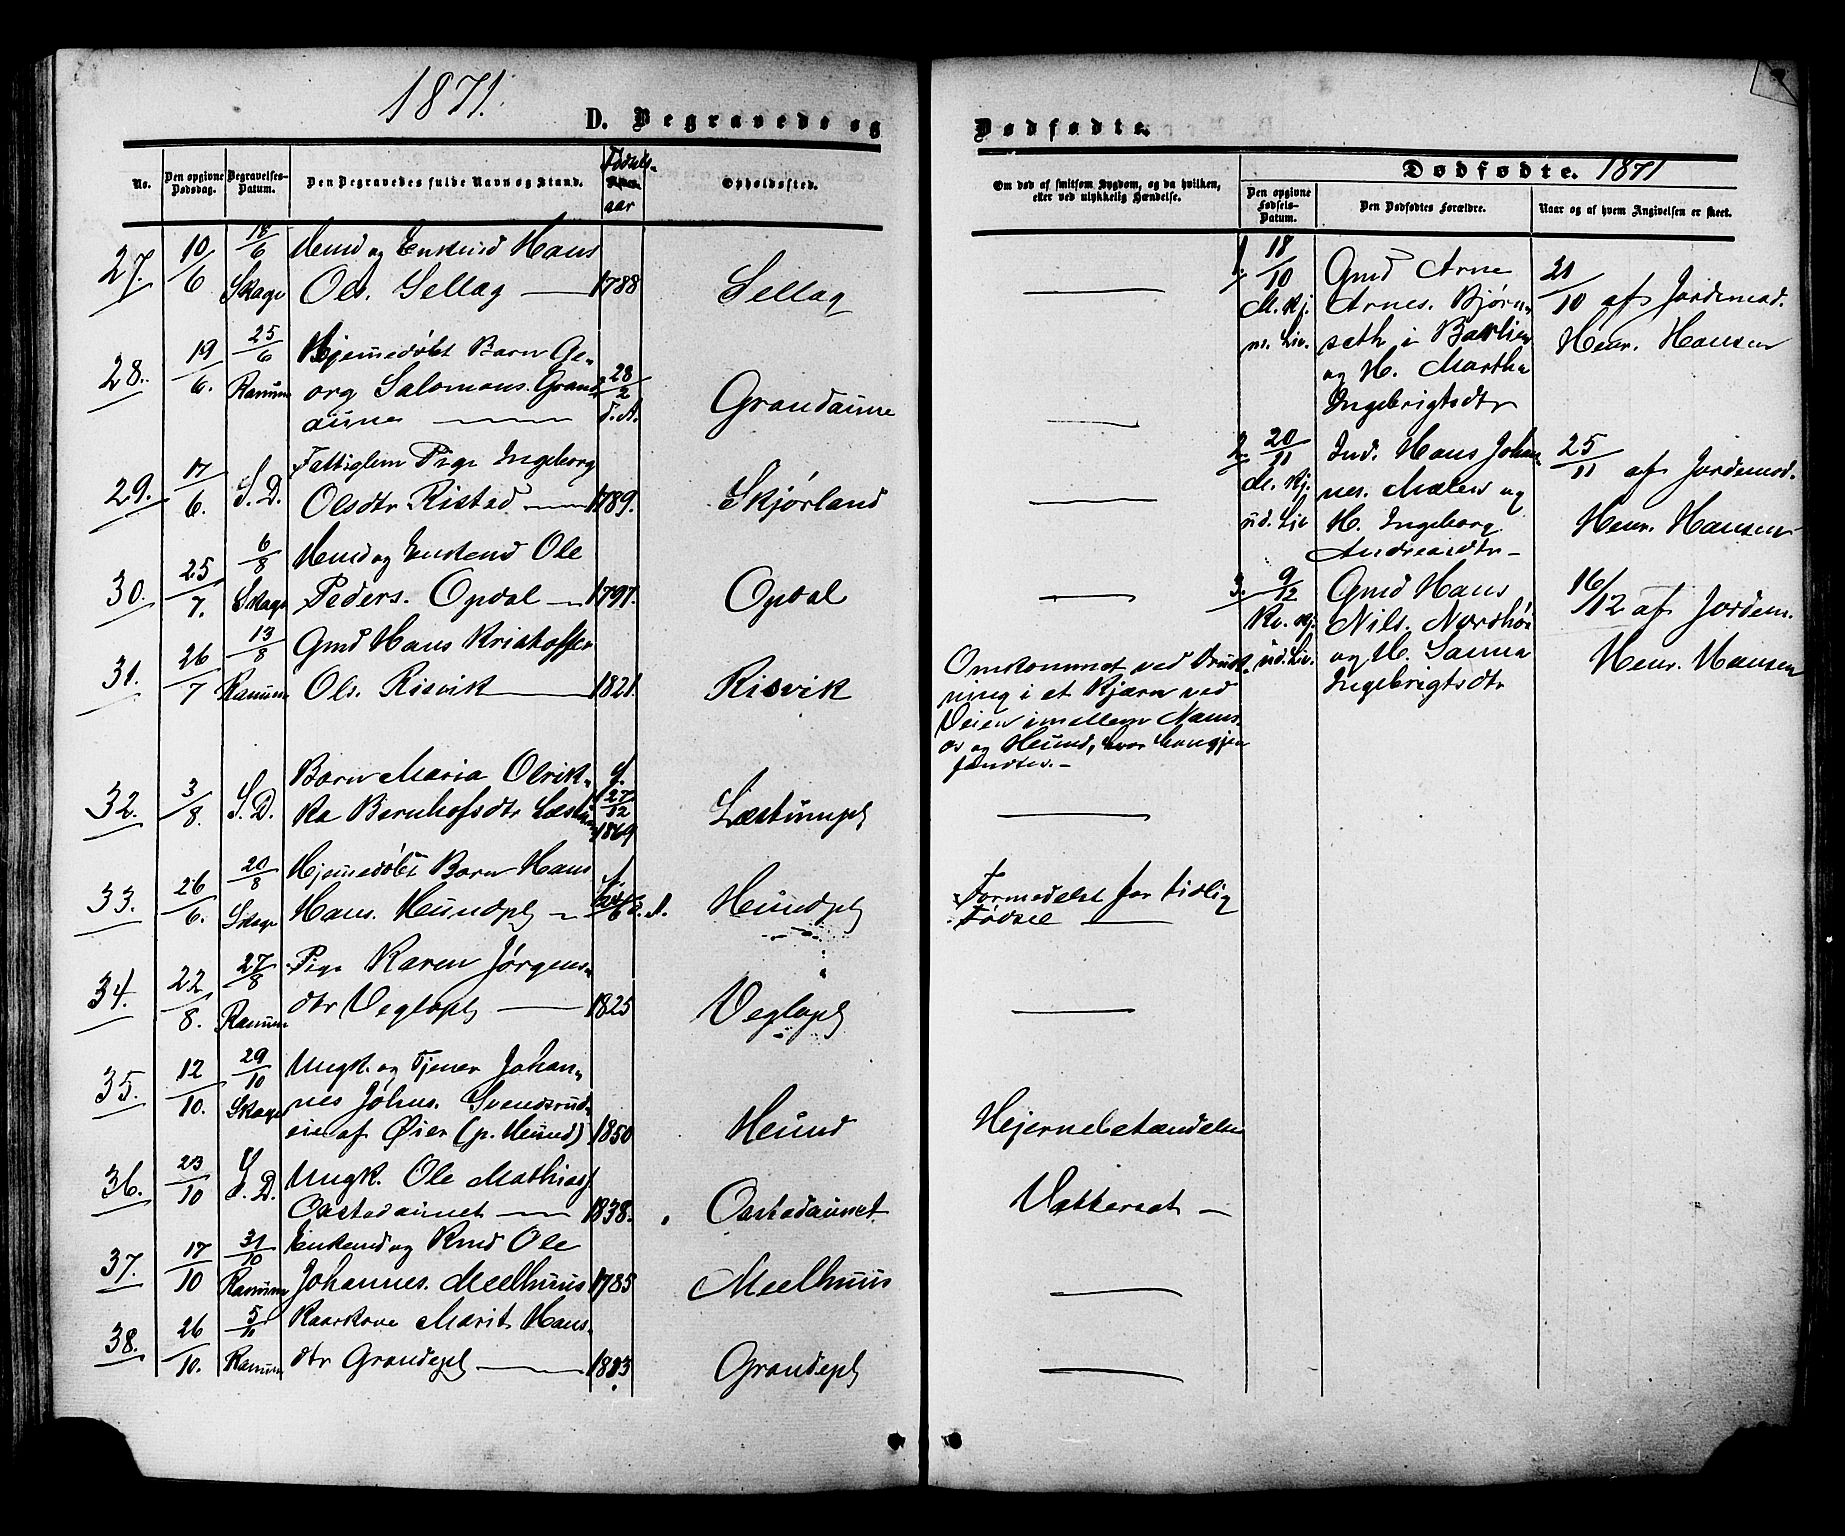 1871.
D. Begravede og
No.
Den opgivne Dødsdag.
Begravelses-Datum.
Den Begravedes fulde Navn og Stand.
Fødsels-
aar
Opholdssted.
27.
10/6
18/6
Skage
Mand og Enkemd Hans
Ols. Sellæg
1788
Sellæg
28.
19/6.
25/6
Ranum
Hjemmedøbt Barn Ge-
org Salomons. Grand-
aune
28/2
d. A.
Grandaune
29.
17/6.
S. D.
Fattiglem Pige Ingeborg
Olsdtr Ristad
1789.
Skjørland
30.
25/7.
6/8
Skage
Mand og Enkemd Ole
Peders. Opdal
1797.
Opdal
31.
26/7
13/8
Ranum
Gmd Hans Kristoffer
Ols. Risvik
1821.
Risvik
32.
3/8.
S. D.
Barn Maria Olrik-
ka Bernhofsdtr
27/12
1869
33.
26/6.
20/8
Skage
Hjemmedøbt Barn Hans
Hans. Heundpl
d. A.
Heundpl
34.
22/8.
27/8
Ranum
Pige Karen Jørgens-
dtr Veglopl
1825
Veglopl
35.
12/10.
29/10
Skage
Ungk. og Tjener Johan-
nes Johns. Svendsrud-
eie af Øier (p. Heund)
1850
Heund
36.
23/10
S. D.
Ungk. Ole Mathias
Oastedaunet
1838.
Oastedaunet
37.
17/10
31/10
Ranum
Enkemd og Kmd Ole
Johannes. Meelhuus
1785
Meelhuus
38.
26/10.
5/11
Ranum
Kaarkone Marit Hans-
dtr Grandepl
1823
Grandepl
Dødfødte.
Om død af smitsom Sygdom, og da hvilken,
eller ved ulykkelig Hændelse.
Omkommet ved Drukk-
ning i et Kjærn ved
Veien imellem Nams-
os og Heund, hvor han gjen-
fandtes.
Formedelst for tidlig
Fødsel
Hjernebetændelse
Vattersot
Dødfødte. 1871
Den opgivne Fødsels-Datum.
Den Dødfødtes Forældre.
Naar og af hvem Angivelsen er skeet.
1.
18/10
M. kj.
m. Liv.
Gmd Arne
Arnes. Bjørn-
seth i
og H. Martha
Ingebrigtsdtr
21/10 af Jordemod.
Henr. Hansen
2.
20/11
M. kj.
ud. Liv
Ind. Hans Johan-
nes. Mælen og
H. Ingeborg
Andreasdtr
25/11 af Jordemod.
Henr. Hansen
3.
9/12
Kv. kj.
ud. Liv.
Gmd Hans
Nils. Nordhøi
og H. Sanna
Ingebrigtsdtr
16/12 af Jordem.
Henr. Hansen